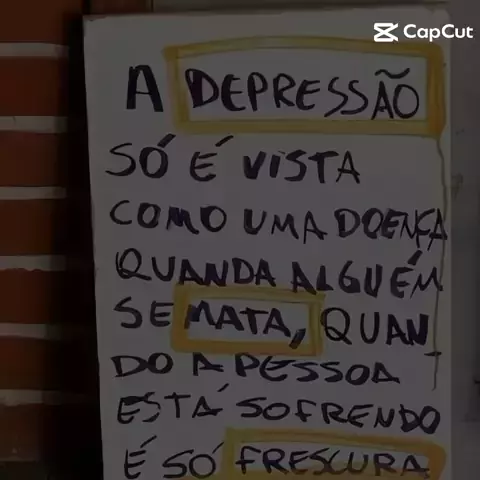 CapCut
A DEPRESSÃO
SÓ É VISTA
COMO UMA DOENÇA
QUANDA ALGUÉM
SE MATA, QUAN
DO A PESSOA
ESTÁ SOFRENDO
É SÓ FRESCURA